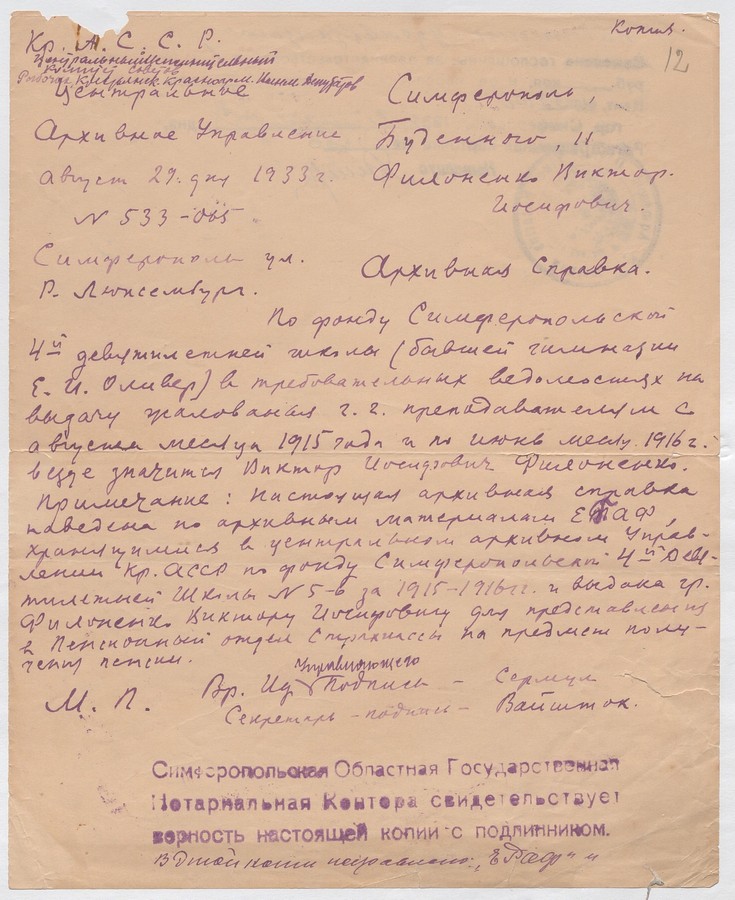 Копия.
12
Кр. А. С. С. Р.
Центральный исполнительный
комит. советов
Рабочих, Крестьянск. Красноарм. Депутатов
Центральное
Архивное Управление
август 29. дня 1933 г.
N 533-005
Симферополь ул.
Р. Люксембург.
Симферополь,
Буденного, 11
Филоненко Виктор.
Иосифович.
Архивная Справка.
По фонду Симферопольской
4й девятилетней школы (бывшей гимназии
Е. И. Оливер) в требовательных ведомостях на
выдачу жалованья г. г. преподавателям с
августа месяца 1915 года и по июнь месяц 1916 г.
везде значится Виктор Иосифович Филоненко.
Примечание: Настоящая архивная справка
наведена по архивным материалам ЕГАФ,
хранящимися в центральном архивном Управ-
лении Кр. АССР по фонду Симферопольской 4й девя-
тилетней Школы N 5-6 за 1915-1916 г.г. и выдана гр.
Филоненко Виктору Иосифовичу для представления
в Пенсионный отдел Страхкассы на предмет полу-
чения пенсии.
Управляющего
М. П. Вр. Ид Подпись -
Секретарь - подпись - Вайшток.
Симферопольская Областная Государственная
Нотариальная Контора свидетельствует
верность настоящей копии с подлинником.
В этой копии исправлено: